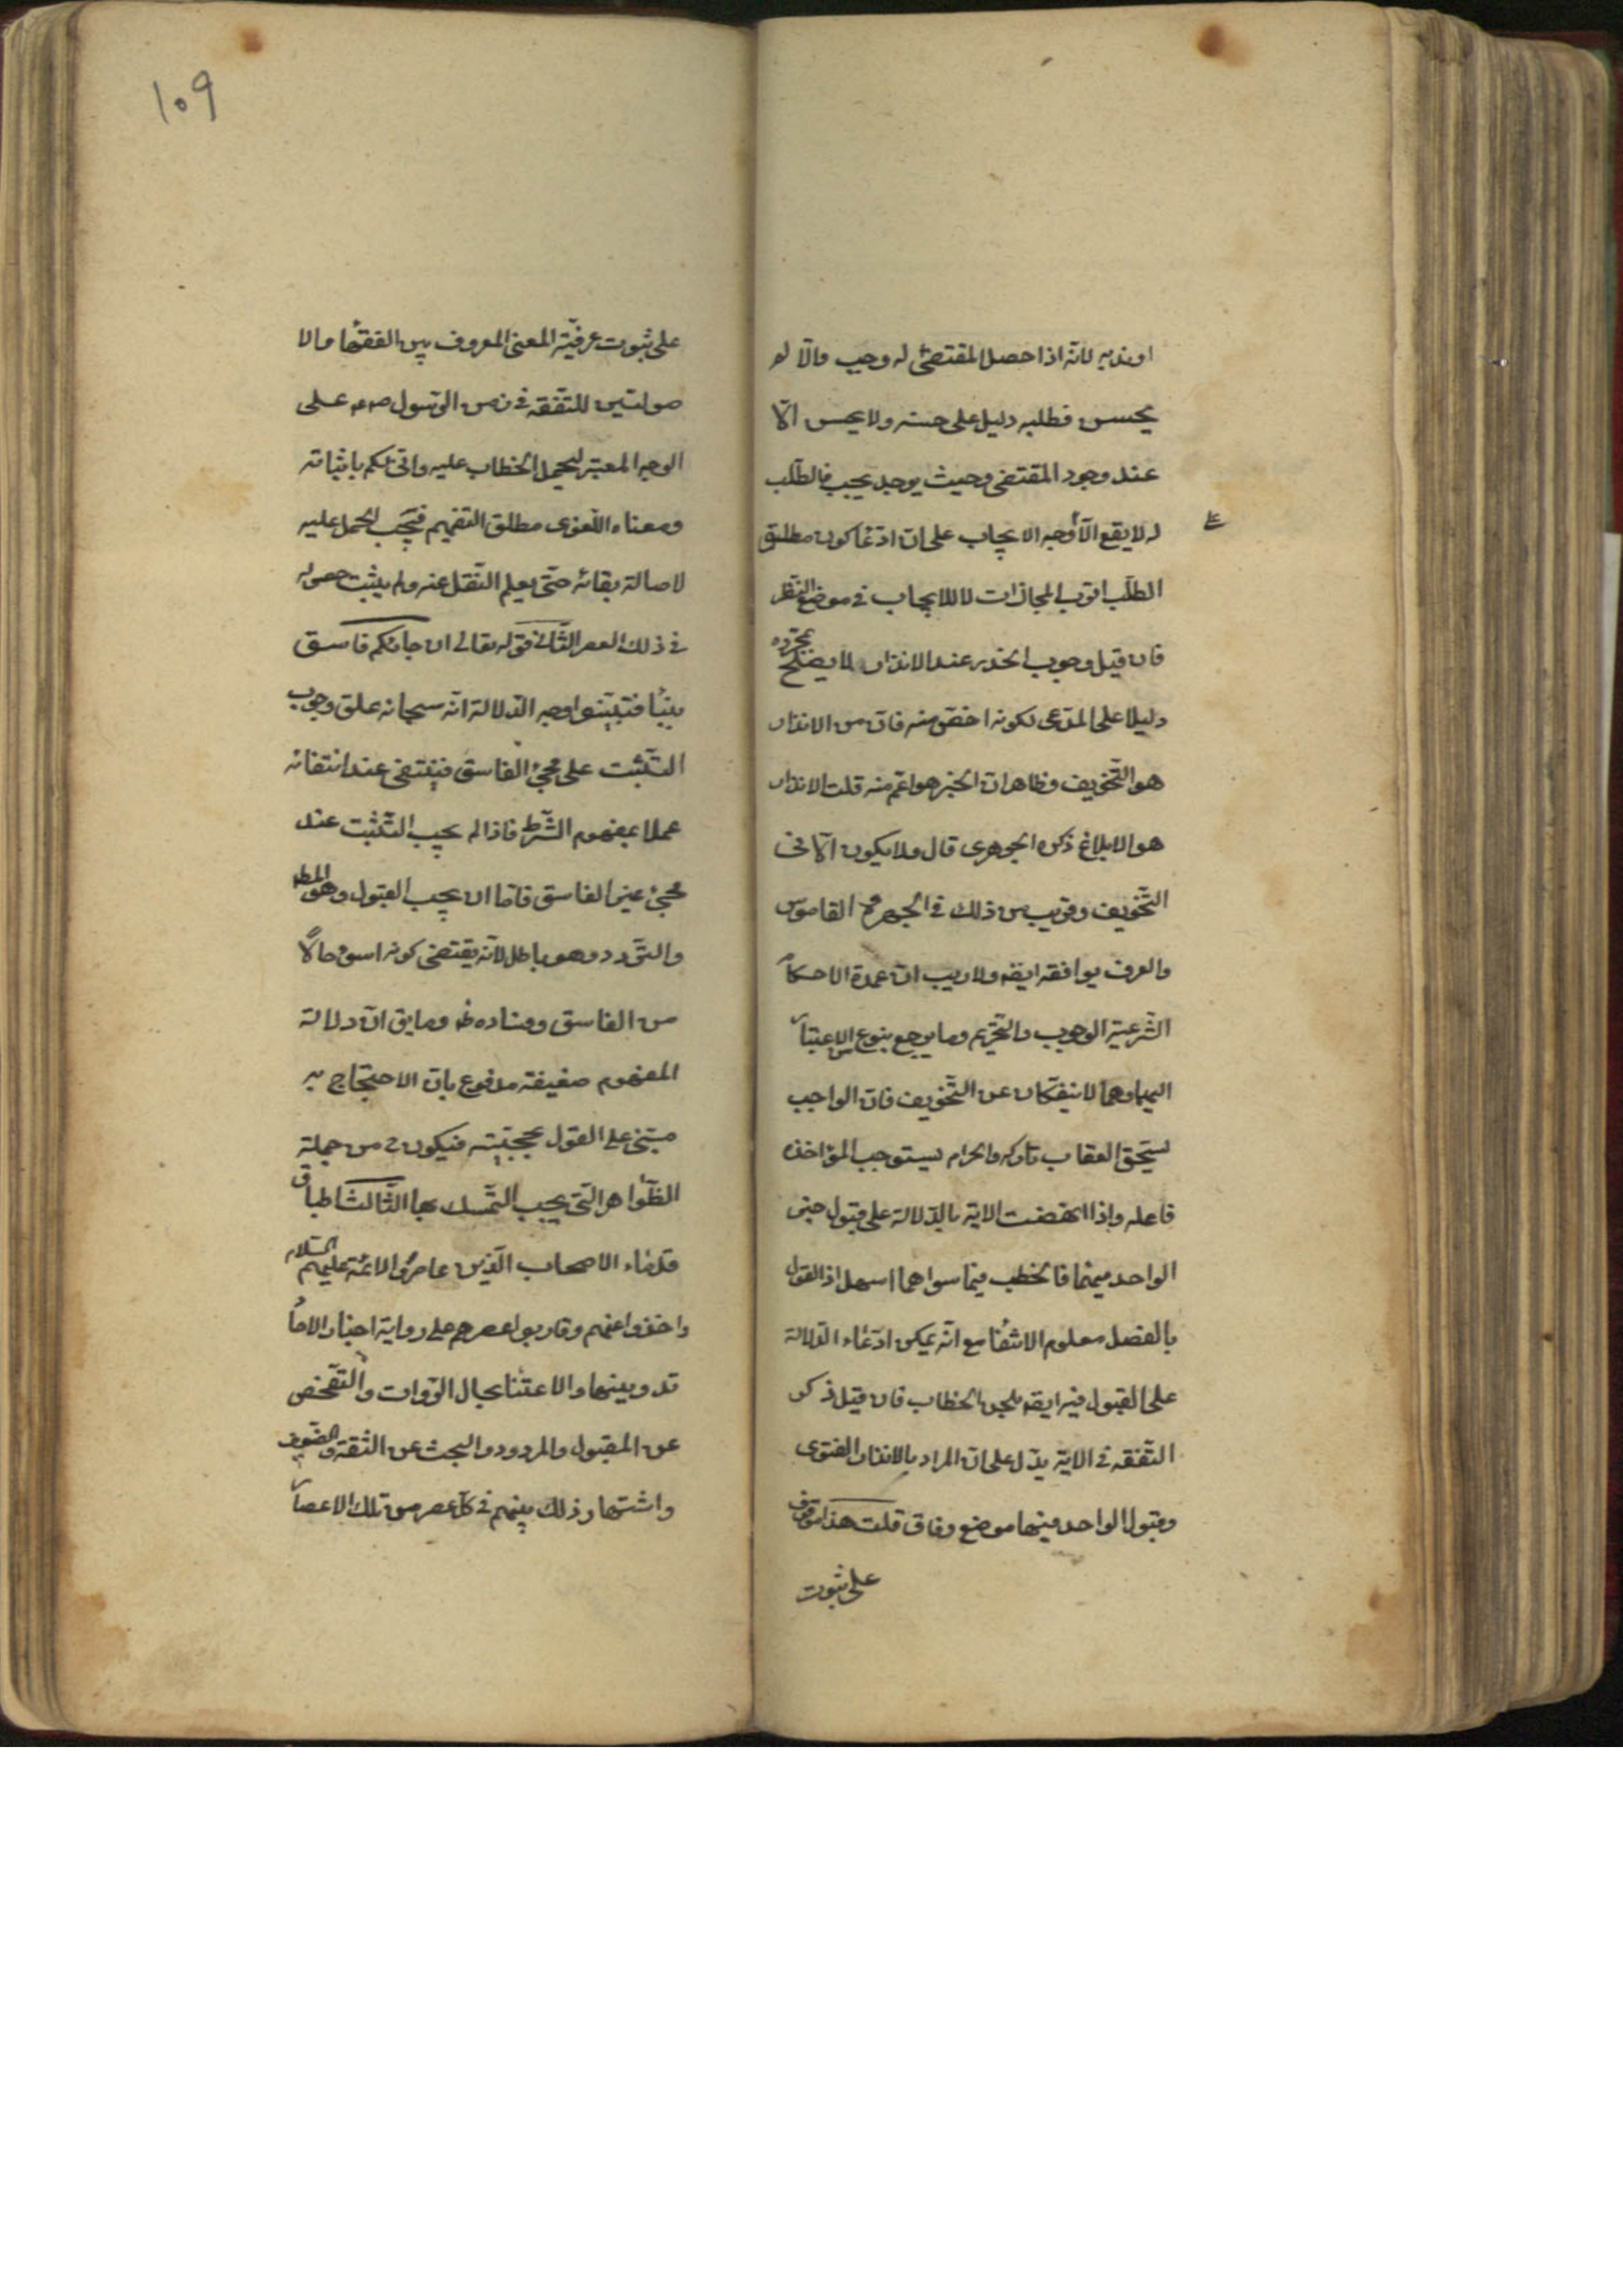 او ندبه لانه اذا حصل المقتضى له وجب والا لو
يحسن فطلبه دليل على حسنه ولا يحسن الا
عند وجود المقتضى وحيث يوجد يجب فالطلب
له لا يقع الا وجه الايجاب على ان ادعا كون مطلق
الطلب اقرب المجازات لا للايجاب في موضع النظر
فان قيل وجوب الحذر عند الانذار لا يصلح بمجرده
دليلا على المدعى لكونه اخص منه فان من الانذار
هو التخويف وظاهر ان الخبر هو اعم منه قلت الانذار
هو الابلاغ ذكره الجوهرى قال ولا يكون الا فى
التخويف وقريب من ذلك فى الجمهرة القاموس
والعرف يوافقه ايضه ولا ريب ان عمدة الاحكام
الشرعية الوجوب والتحريم وما يرجع بنوع من الاعتبار
اليهما وهما لا ينفكان عن التخويف فان الواجب
يستحق العقاب تاركه والحرام يستوجب المؤاخذه
فاعله واذا انهضت الاية بالدلالة على قبول خبر
الواحد فيهما فالخطب فيما سواهما اسهل اذ القول
بالفصل معلوم الانتفا مع انه يمكن ادعاء الدلالة
على القبول فيه ايضه بلحن الخطاب فان قيل ذكر
التفقه فى الاية يدل على ان المراد بالانذار الفتوى
وقبول الواحد فيها موضع وفاق قلت هذا موقوف
على ثبوت
١٠٩
على ثبوت عرفية المعنى المعروف بين الفقها والا
صوليين للتفقه فى زمن الرسول ص على
الوجه المعتبر ليحمل الخطاب عليه وانى لكم باثباته
ومعناه اللغوى مطلق التفهم فيجب الحمل عليه
لاصالة بقائه حتى يعلم النقل عنه ولم يثبت حصوله
فى ذلك العصر الثانى قوله تعالى ان جائكم فاسق
بنبأ فتبينوا وجه الدلالة انه سبحانه علق وجوب
التثبت على مجئ الفاسق فينتفى عند انتفائه
عملا بمفهوم الشرط فاذا لم يجب التثبت عند
مجئ غير الفاسق فاما ان يجب القبول وهو المطه
والترد وهو باطل لانه يقتضى كونه اسوء حالا
من الفاسق وفساده ظ وما يق ان دلالة
المفهوم ضعيفة مدفوع بان الاحتجاج به
مبنى على القول بحجيته فيكون ح من جملة
الظواهر التى يجب التمسك بها الثالث اطباق
قدماء الاصحاب الذين عاصروا الائمة عليهم السلام
واخذوا عنهم وقاربوا عصرهم على رواية اخبار الاحا
تدوينها والاعتنا بحال الروات والتفحص
عن المقبول والمردود والبحث عن الثقة والضعيف
واشتهار ذلك بينهم فى كل عصر من تلك الاعصار